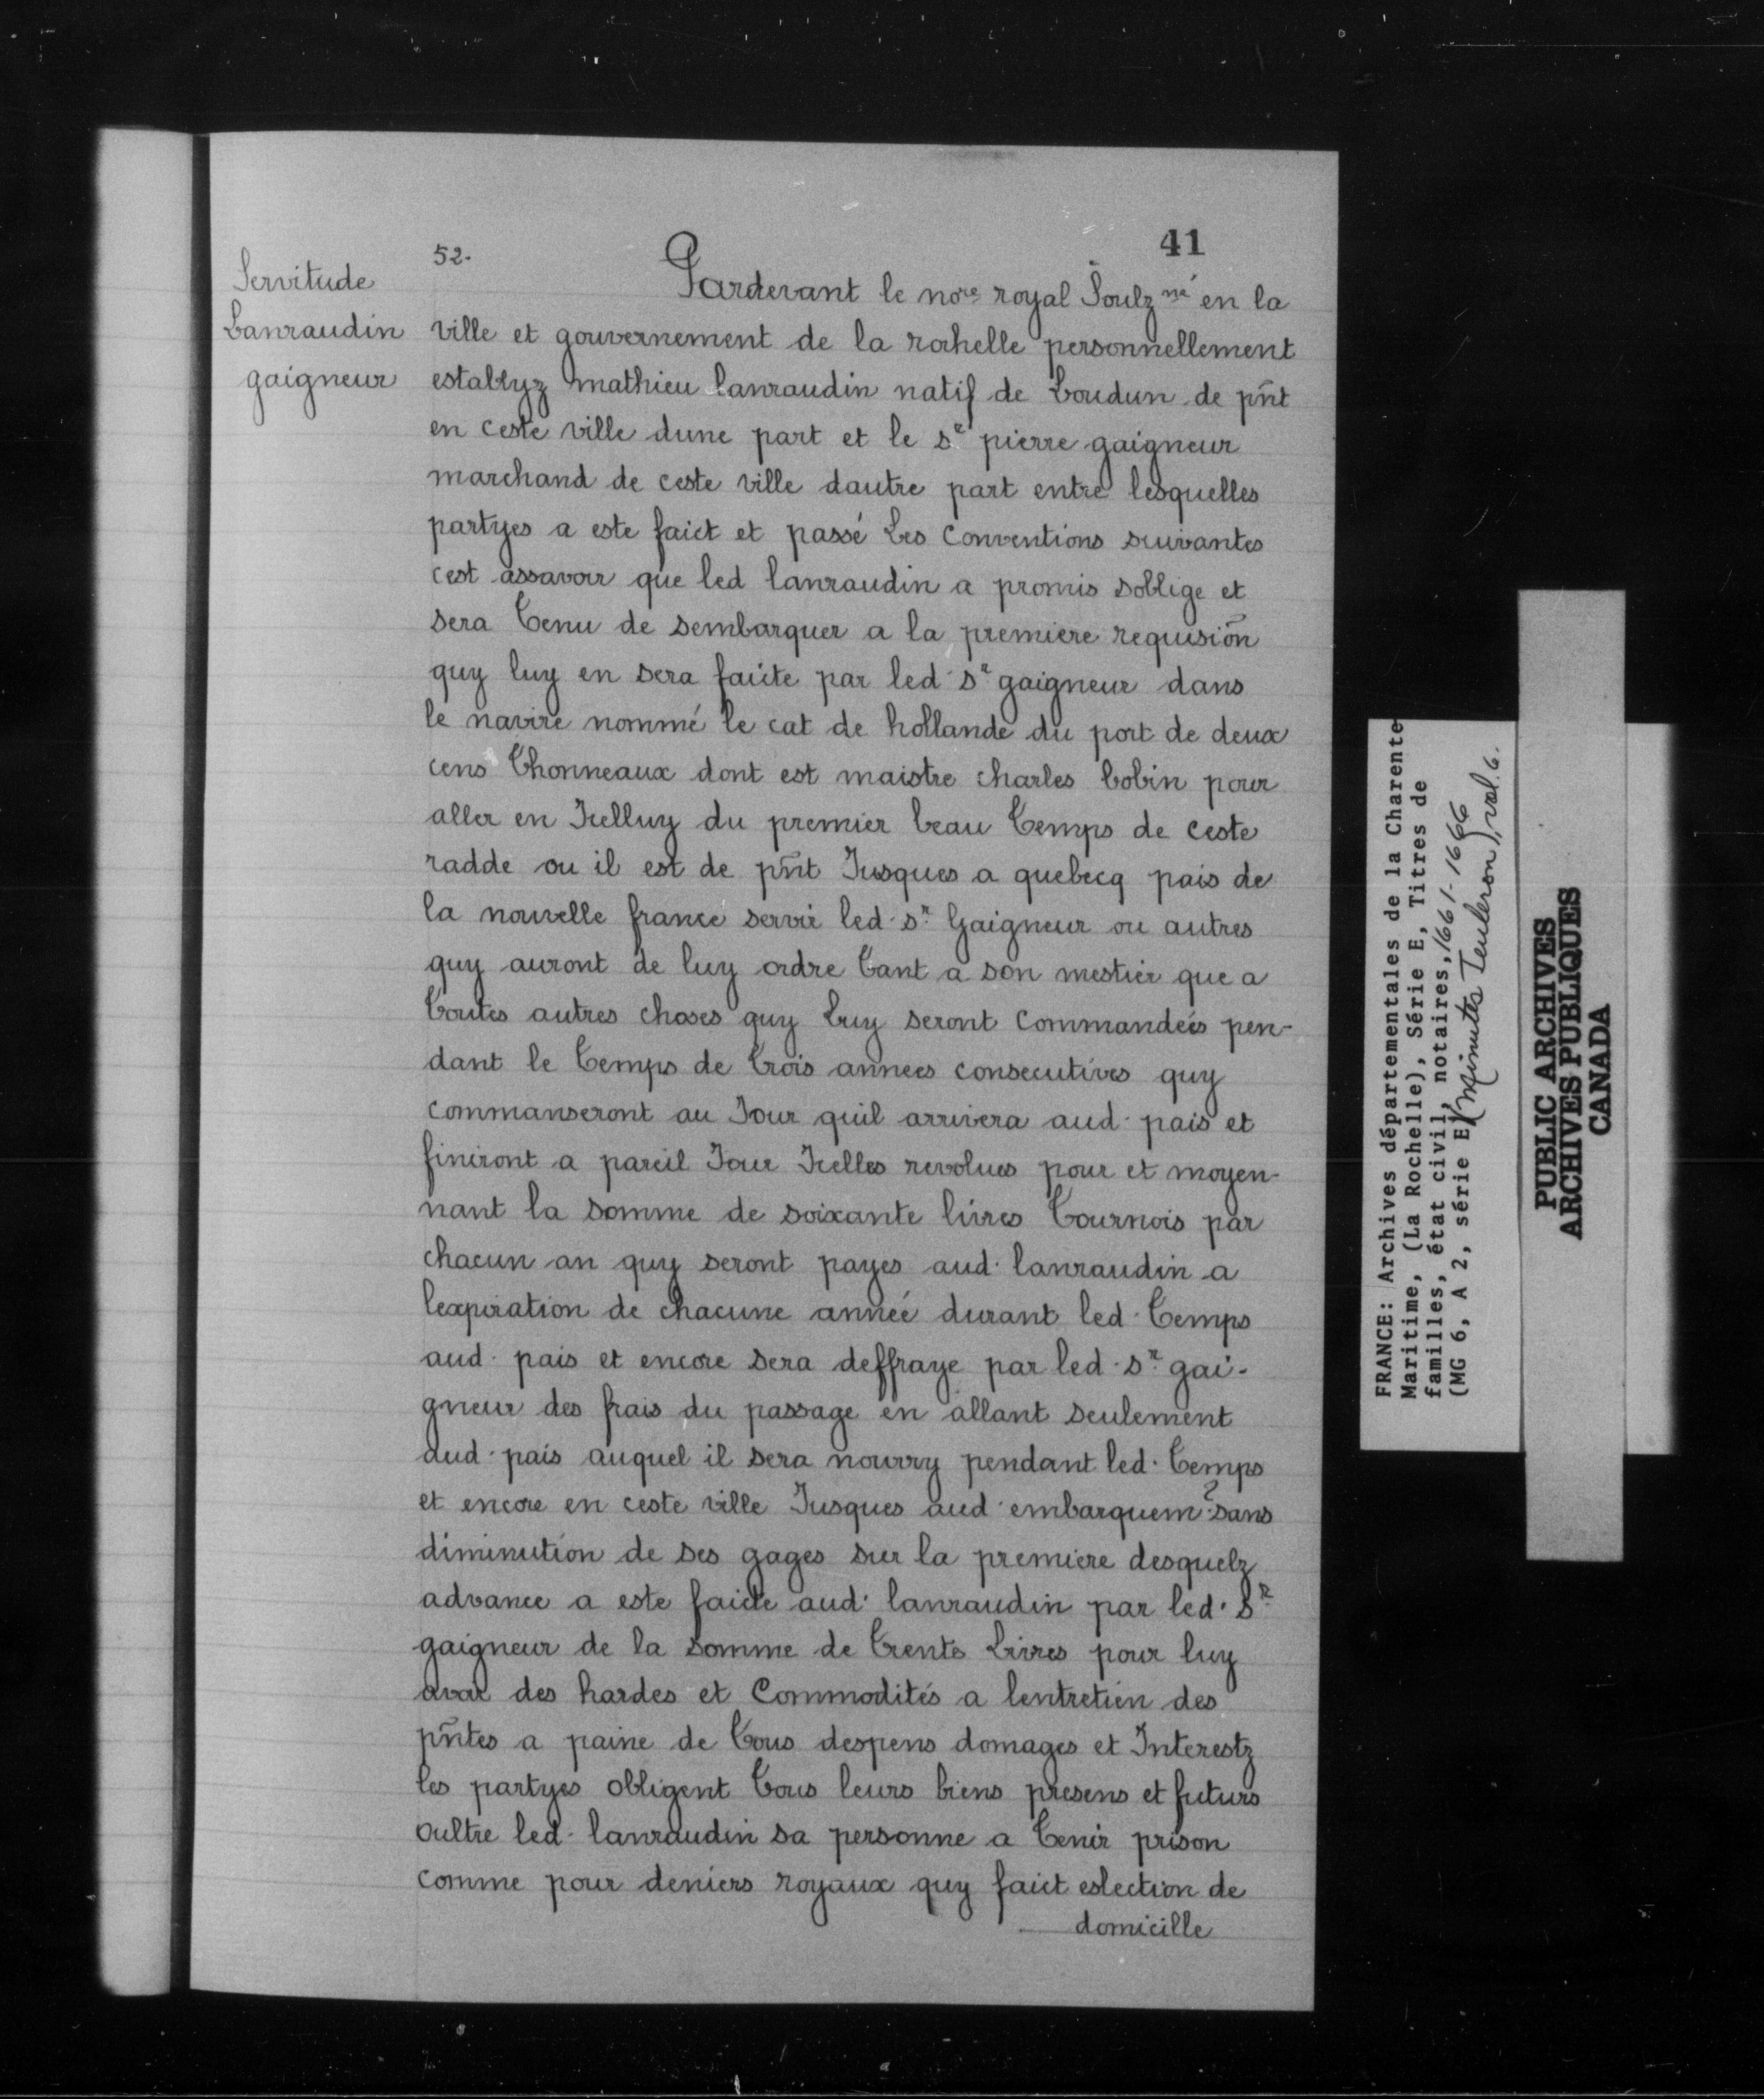 41
52.
Servitude
Lanraudin
gaigneur
Pardevant le nore royal Soulz né en la
ville et gouvernement de la rochelle personnellement
establyz mathieu lanraudin natif de Loudun de pñt
en ceste ville dune part et le sr pierre gaigneur
marchand de ceste ville dautre part entre lesquelles
partyes a este faict et passé Les conventions suivantes
cest assavoir que led lanraudin a promis soblige et
sera Tenu de sembarquer a la premiere requisiõn
quy luy en sera faicte par led. sr gaigneur dans
le navire nommé le cat de hollande du port de deux
cens Thonneaux dont est maistre charles bobin pour
aller en Icelluy du premier beau Temps de ceste
radde ou il est de pñt Jusques a quebecq pais de
la nouvelle france servir led. sr. Gaigneur ou autres
quy auront de luy ordre Tant a son mestier que a
Toutes autres choses quy Luy seront commandeés pen-
dant le Temps de Trois annees consecutives quy
commanseront au Jour quil arrivera aud. pais et
finiront a pareil Jour Icelles revolues pour et moyen-
nant la somme de soixante livres Tournois par
chacun an quy seront payes aud. lanraudin a
lexpiration de chacune anneé durant led. Temps
aud. pais et encore sera deffraye par led. sr. gai-
gneur des frais du passage en allant seulement
aud. pais auquel il sera nourry pendant led. Temps
et encore en ceste ville Jusques aud. embarquemt. sans
diminution de ses gages sur la premiere desquelz
advance a este faicte aud. lanraudin par led. Sr.
gaigneur de la somme de Trente Livres pour luy
avoir des hardes et Commodités a lentretien des
pñtes a paine de Tous despens domages et Interestz
les partyes obligent Tous leurs biens presens et futurs
oultre led. lanraudin sa personne a Tenir prison
comme pour deniers royaux quy faict eslection de
domicille
FRANCE: Archives départementales de la Charente
Maritime, (La Rochelle), Série E, Titres de
familles, état civil, notaires, 1661-1666
(MG 6, A 2, série E) (Minutes Teuleron), vol. 6.
PUBLIC ARCHIVES
ARCHIVES PUBLIQUES
CANADA